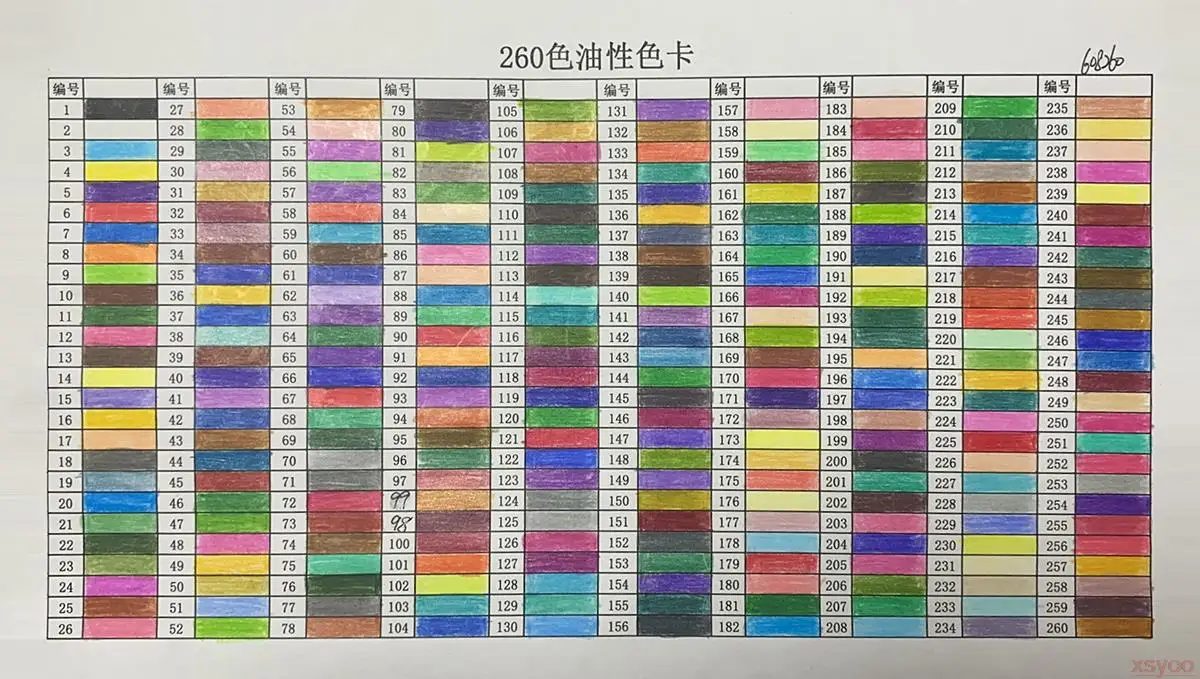 260色油性色卡
编号 编号 编号 编号 编号 编号 编号 编号 编号 编号
1 27 53 79 105 131 157 183 209 235
2 28 54 80 106 132 158 184 210 236
3 29 55 81 107 133 159 185 211 237
4 30 56 82 108 134 160 186 212 238
5 31 57 83 109 135 161 187 213 239
6 32 58 84 110 136 162 188 214 240
7 33 59 85 111 137 163 189 215 241
8 34 60 86 112 138 164 190 216 242
9 35 61 87 113 139 165 191 217 243
10 36 62 88 114 140 166 192 218 244
11 37 63 89 115 141 167 193 219 245
12 38 64 90 116 142 168 194 220 246
13 39 65 91 117 143 169 195 221 247
14 40 66 92 118 144 170 196 222 248
15 41 67 93 119 145 171 197 223 249
16 42 68 94 120 146 172 198 224 250
17 43 69 95 121 147 173 199 225 251
18 44 70 96 122 148 174 200 226 252
19 45 71 97 123 149 175 201 227 253
20 46 72 99 124 150 176 202 228 254
21 47 73 98 125 151 177 203 229 255
22 48 74 100 126 152 178 204 230 256
23 49 75 101 127 153 179 205 231 257
24 50 76 102 128 154 180 206 232 258
25 51 77 103 129 155 181 207 233 259
26 52 78 104 130 156 182 208 234 260
xsyoo